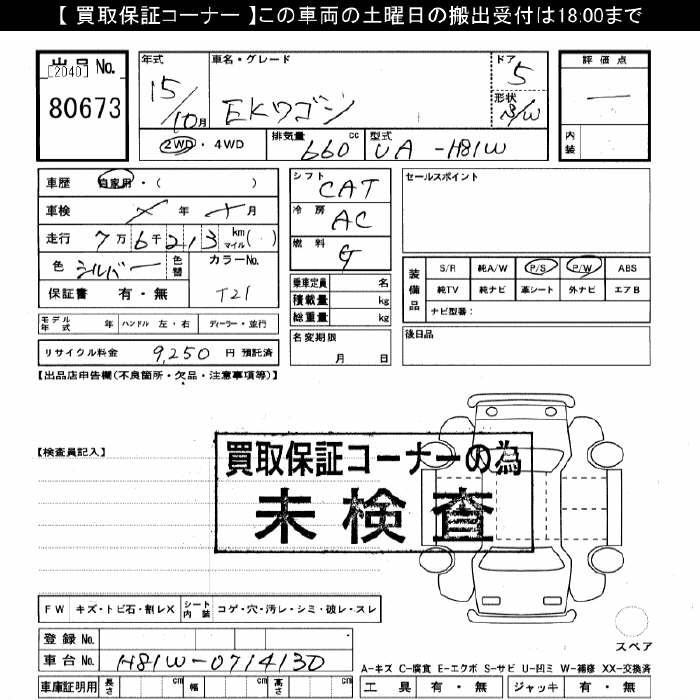 【 買取保証コーナー 】この車両の土曜日の搬出受付は18:00まで
出品 No.
[2040]
80673
年式
15/10月
車名・グレード
EKワゴン
ドア
5
形状
評価点
内装
2WD ・ 4WD
排気量
660 cc
型式
UA -H81W
車歴 自家用・( )
車検 年 月
走行 7万6千213 km マイル ( )
色 シルバー 色替
カラーNo.
T21
保証書 有・無
モデル年式 年 ハンドル 左・右 ディーラー・並行
リサイクル料金 9,250 円 預託済
シフト
CAT
冷房
AC
燃料
G
乗車定員 名
積載量 kg
総重量 kg
名変期限
月 日
セールスポイント
装備品
S/R 純A/W P/S P/W ABS
純TV 純ナビ 革シート 外ナビ エアB
ナビ型番：
後日品
【出品店申告欄(不良箇所・欠品・注意事項等)】
【検査員記入】
買取保証コーナーの為
未検査
FW キズ・トビ石・割レX シート内装 コゲ・穴・汚レ・シミ・破レ・スレ
登録 No.
車台 No. H81W-0714130
車庫証明用 長さ cm 幅 cm 高さ cm
スペア
A-キズ C-腐食 E-エクボ S-サビ U-凹ミ W-補修 XX-交換済
工具 有・無 ジャッキ 有・無